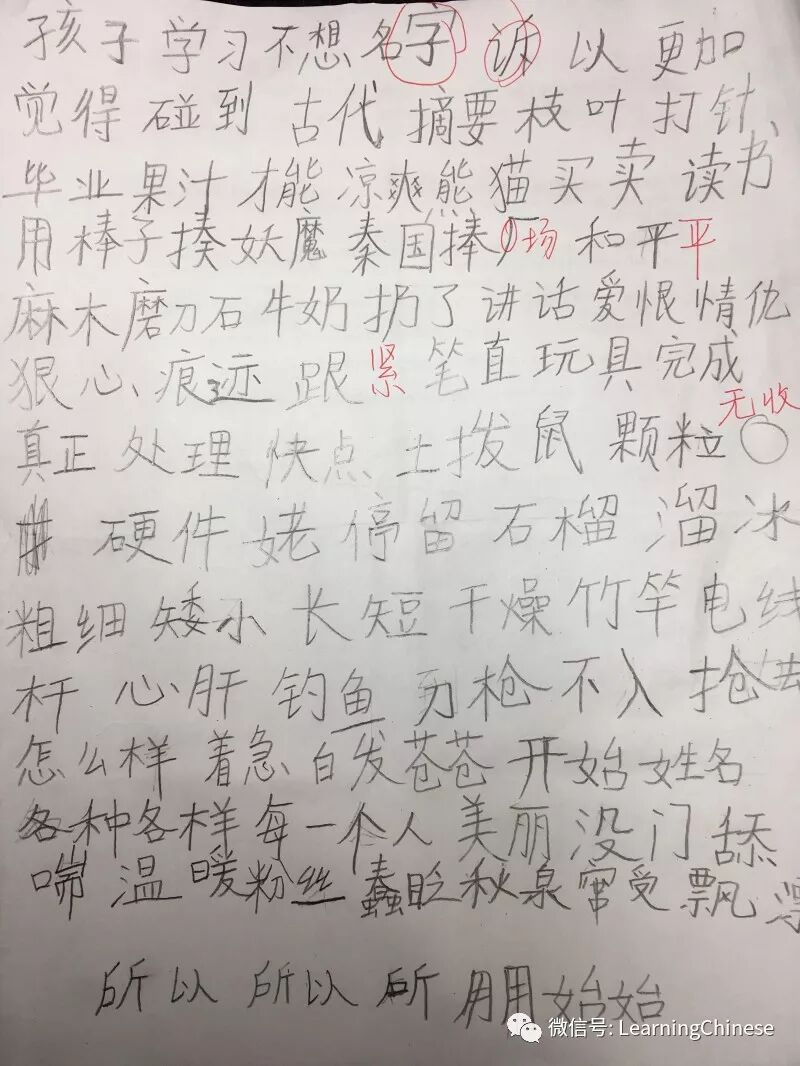 孩子 学习 不想 名字 诉 以 更加
觉得 碰到 古代 摘要 枝叶 打针、
毕业 果汁 才能 凉爽 熊猫 买卖 读书
用棒子揍妖魔 秦国 捧 广场 和平平
麻木 磨刀石 牛奶 扔了 讲话 爱恨情仇
狠心、痕迹 跟紧 笔直 玩具 完成
无收
真正 处理 快点 土拨鼠 颗粒
硬件 姥 停留 石榴 溜冰
粗细 矮小 长短 干燥 竹竿 电线
杆 心肝 钓鱼 刀枪不入 抢去
怎么样 着急 白发苍苍 开始 姓名
各种各样 每一个人 美丽 没门 舔
喘 温暖 粉丝 蠢 眨 秋 泉 受 飘
所以 所以 所 用 始始
微信号: LearningChinese